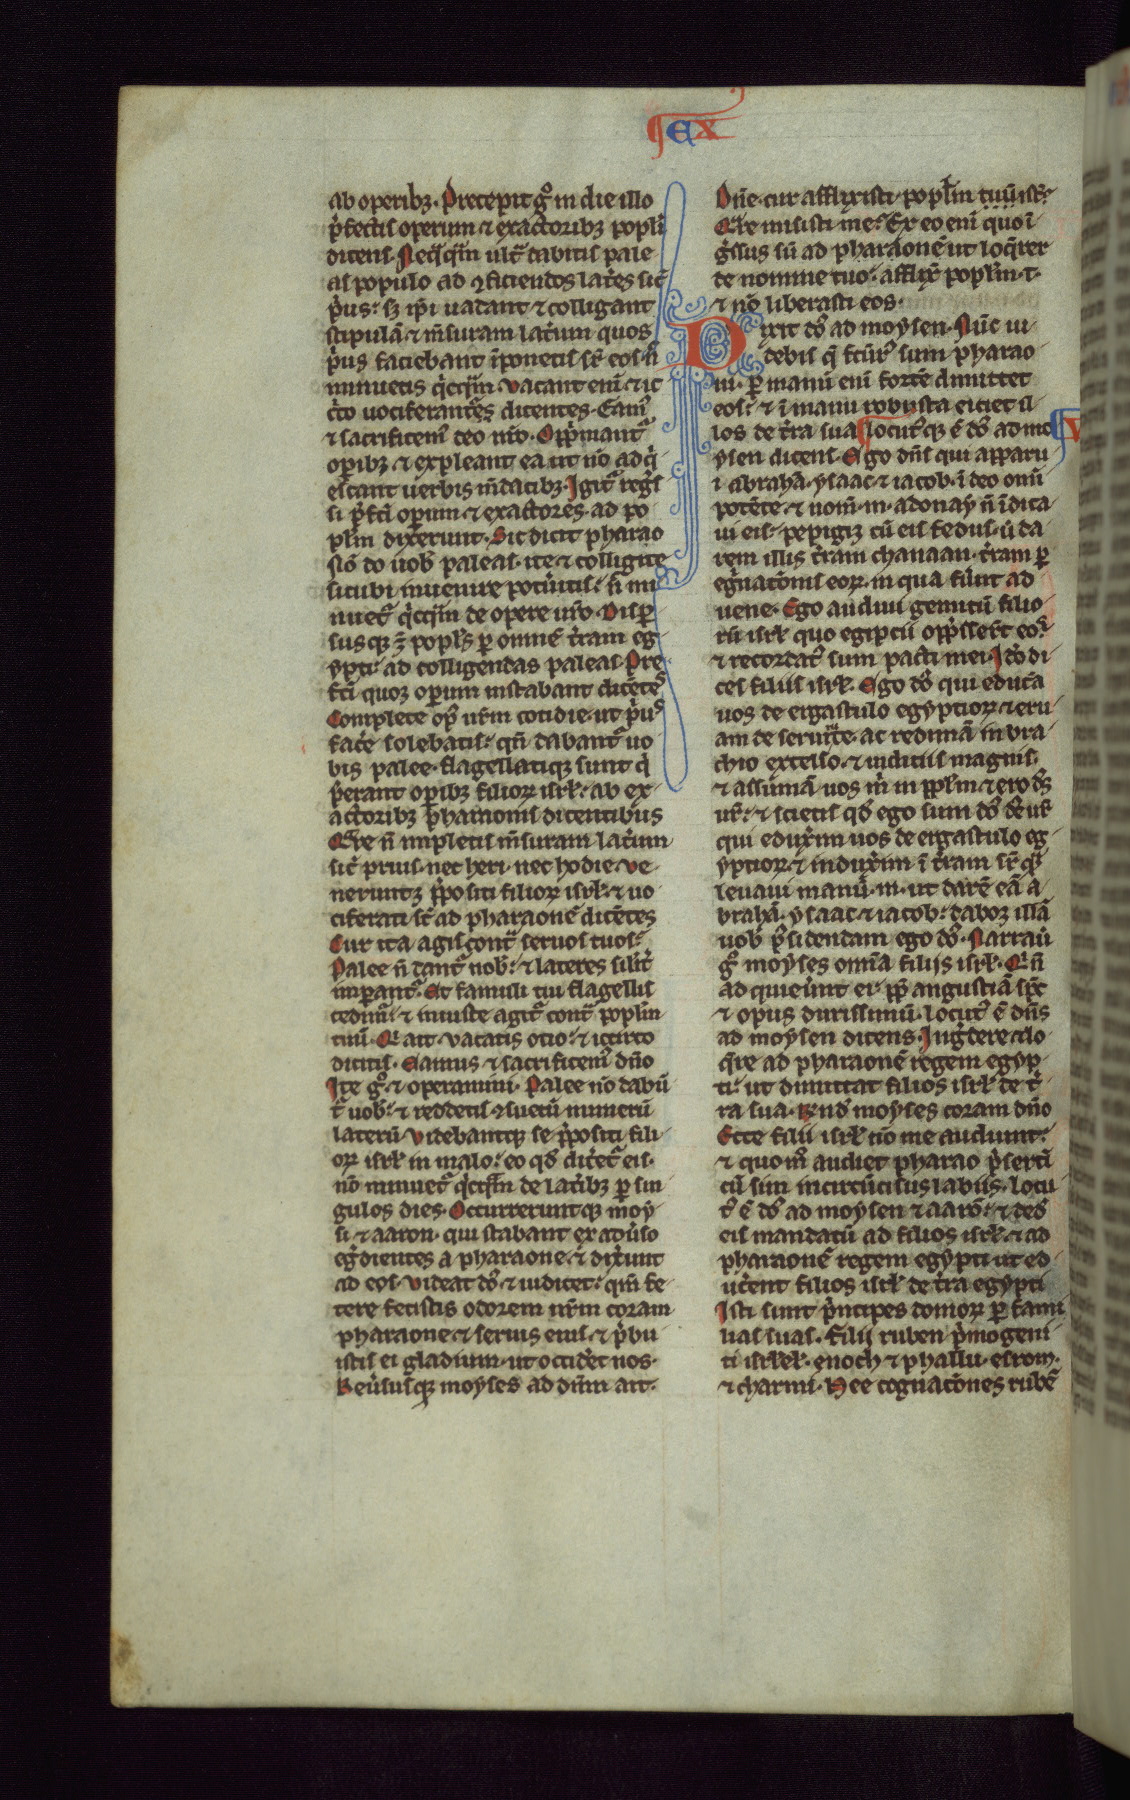 EX
ab operibꝫ. Precepit gͦ in die illo
p̄fectis operum ⁊ exactoribꝫ popli
dicens. Neq̄q̄m ult̄ dabitis pale
as populo ad ꝯficiendos lat̄es sic̄
p̄us: sꝫ ip̄i uadant ⁊ colligant
stipulā ⁊ m̄suram lat̄um quos
p̄us faciebant īponetis sr̄ eos n̄
minuetis q̄cq̄m vacant enī ⁊ ic
c̄co uociferantes dicentes. Eamꝰ
⁊ sacrificemꝰ deo nr̄o. Opp̄mantᷣ
oꝑibꝫ ⁊ expleant ea ut nō adq̄
escant uerbis m̄dacibꝫ. Igitᷣ egͥssi
si p̄fc̄i oꝑum ⁊ exactores ad po
plm̄ dixerunt. Sic dicit pharao
nō do uob̄ paleas. ite ⁊ colligite
sicubi inuenire pot̄itis: n̄ mi
nuetᷣ q̄cq̄m de opere ur̄o. Disꝑ
susqꝫ ē popl̄s ꝑ omnē t̄ram eg
ypti: ad colligendas paleas. Pre
fc̄i quoqꝫ oꝑum instabant dicētes
Complete opꝰ ur̄m cotidie. ut p̄us
fac̄e solebatis: qn̄ dabantᷣ uo
bis palee. flagellatiqꝫ sunt q̄
p̄erant oꝑibꝫ filioꝝ isrl̄: ab ex
actoribꝫ pharaonis dicentibus
Q̄re n̄ impletis m̄suram lat̄um
sic̄ prius. nec heri. nec hodie. Ve
neruntqꝫ p̄positi filioꝝ isrl̄ ⁊ uo
ciferati st̄ ad pharaonē dicētes
Cur ita agis cont̄ seruos tuos:
Palee n̄ dantᷣ nob̄: ⁊ lateres silit̄
imꝑantᷣ. Et famuli tui flagellis
cedimᷣ ⁊ iniuste agitᷣ cont̄ poplm̄
tuū. Q̄ ait. vacatis otio: ⁊ icirco
dicitis. Eamus ⁊ sacrificemꝰ dn̄o
Ite gͦ. ⁊ operamini. Palee nō dabū
tᷣ uob̄: ⁊ reddetis ꝯsuetū numerū
laterū. Videbantqꝫ se p̄positi fili
oꝝ isrl̄ in malo: eo qd̄ dic̄etᷣ eis.
nō minuetᷣ q̄cq̄m de lat̄ibꝫ ꝑ sin
gulos dies. Occurreruntqꝫ moy
si ⁊ aaron. qui stabant ex adūso
egᷣdientes a pharaone. ⁊ dix̄unt
ad eos. Videat ds̄ ⁊ iudicet: qm̄ fe
tere fecistis odorem nr̄m coram
pharaone ⁊ seruis eius. ⁊ p̄bu
istis ei gladium. ut occid̄et nos.
Reūsusqꝫ moyses ad dn̄m ait.
Dn̄e. cur afflixisti poplm̄ tuū istū:
Q̄re misisti me: Ex eo enī quo ī
gͥssus sū ad pharaonē ut loq̄rer
de nomine tuo: afflix̄ poplm̄ .t.
⁊ nō liberasti eos.
Dixit ds̄ ad moysen. Nūc ui
debis q̄ fc̄urꝰ sum pharao
ni. ꝑ manū enī fortē dimittet
eos: ⁊ ī manu robusta eiciet il
los de t̄ra sua. Locutꝰqꝫ ē ds̄ ad mo
V
ysen dicens. Ego dn̄s qui apparu
i abrahā. ysaac ⁊ iacob. ī deo omī
potēte. ⁊ nom̄ .m. adonay n̄ īdica
ui eis. pepigiqꝫ cū eis fedus. ut da
rem illis t̄ram chanaan. t̄ram ꝑ
egͥnac̄onis eoꝝ. in qua fūnt ad
uene. Ego audiui gemitū filio
rū isrl̄ quo egipcii opp̄sserūt eos.
⁊ recordatꝰ sum pacti mei. Iō di
ces filiis isrl̄. Ego ds̄ qui educā
uos de ergastulo egyptioꝝ ⁊ eru
am de seruitute. ac redimā in bra
chio excelso. ⁊ iudiciis magnis.
⁊ assumā uos m̄ in pplm̄ ⁊ ero ds̄
ur̄: ⁊ scietis qd̄ ego sum ds̄ ds̄ ur̄
qui edux̄im uos de ergastulo eg
yptioꝝ. ⁊ indux̄im ī t̄ram sr̄ q̄m
leuaui manū .m. ut darē eā a
brahā. ysaac ⁊ iacob: daboqꝫ illā
uob̄ p̄sidendam ego ds̄. Narrauit
gͦ moyses omīa filijs isrl̄. Q̄ n̄
ad quieūnt ei. ꝓp̄ angustiā spc̄
⁊ opus durissimū. locutꝰ ē dn̄s
ad moysen dicens. Ingᷣdere ⁊ lo
q̄re ad pharaonē regem egyp
ti: ut dimittat filios isrl̄ de t̄
ra sua. Rn̄d̄ moyses coram dn̄o
Ecce filii isrl̄ nō me audiunt:
⁊ quomō audiet pharao p̄sertī
cū sim incircūcisus labiis. Locu
tꝰ ē ds̄ ad moysen ⁊ aarō: ⁊ ded̄
eis mandatū ad filios isrl̄ ⁊ ad
pharaonē regem egypti ut ed
uc̄ent filios isrl̄ de t̄ra egypti
Isti sunt p̄ncipes domoꝝ ꝑ fami
lias suas. Filii ruben p̄mogeni
ti isrl̄. enoch ⁊ phallu. esrom.
⁊ charmi. Hee cognac̄ones rubē